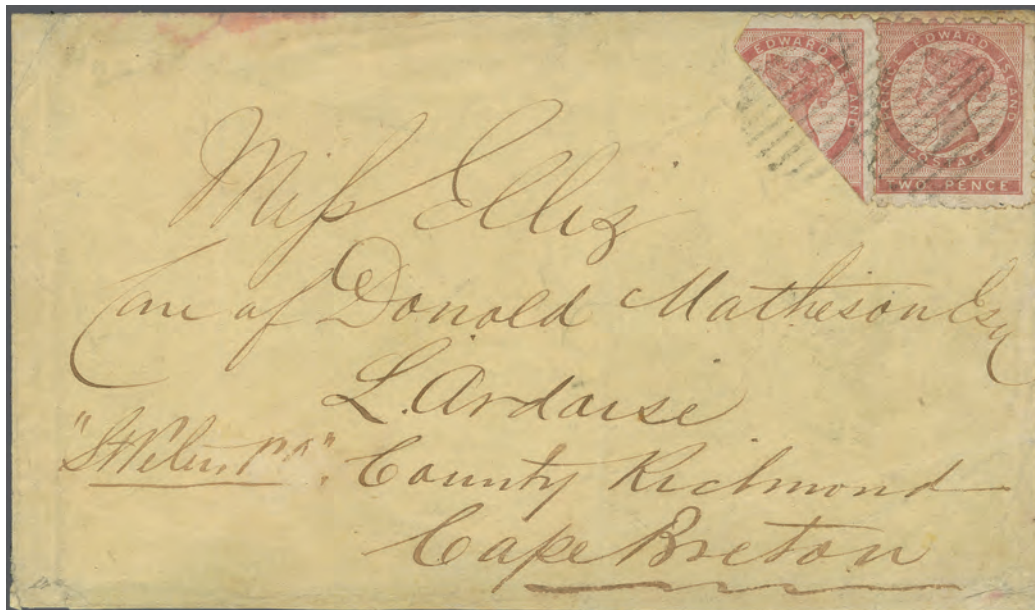 EDWARD ISLAND
PRINCE EDWARD ISLAND
POSTAGE
TWO PENCE
Miss Elliz
Care of Donald Matheson Esq
L. Ardoise
"St Peters P.O". County Richmond
Cape Breton